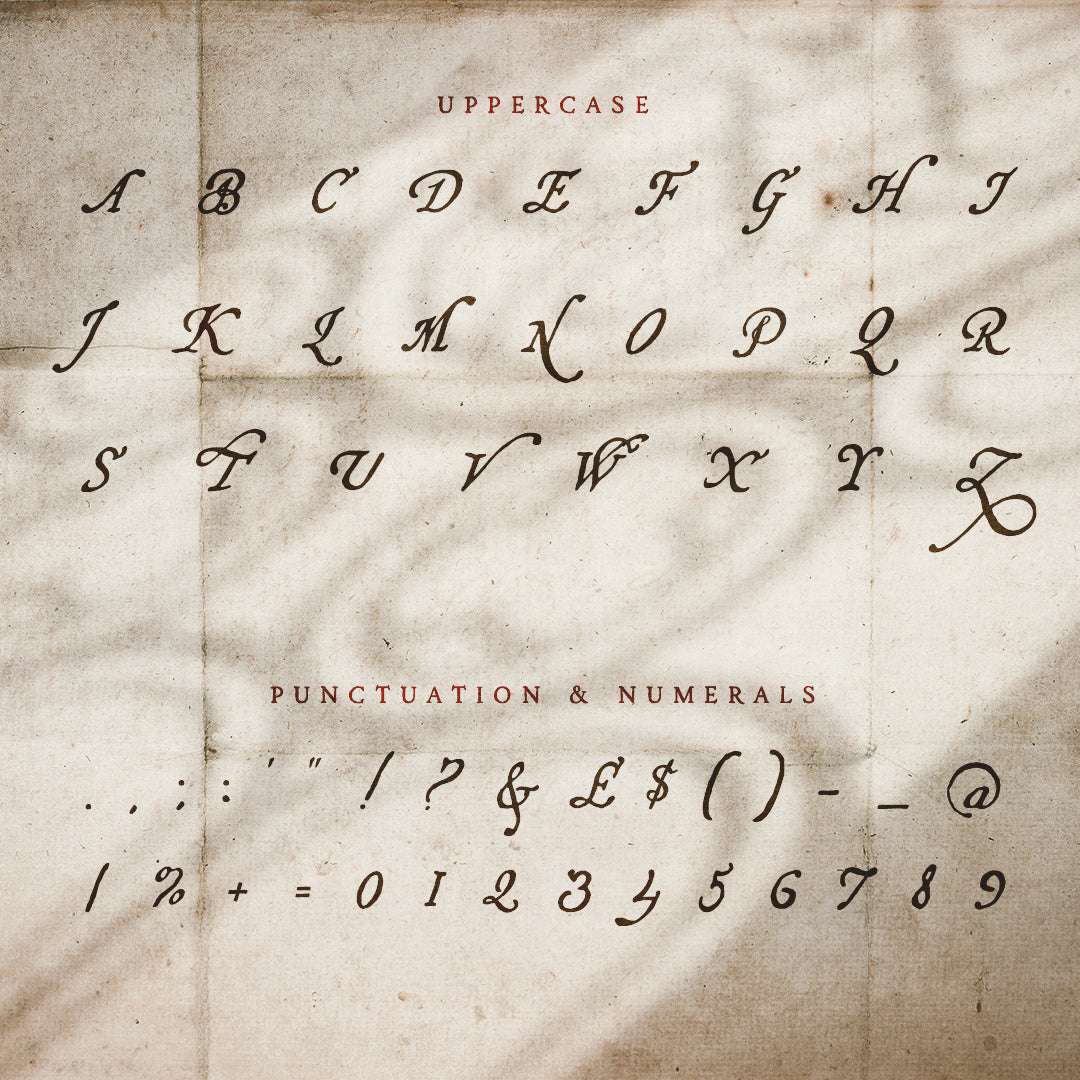 UPPERCASE
A B C D E F G H I
J K L M N O P Q R
S T U V W X Y Z
PUNCTUATION & NUMERALS
. , ; : ' " ! ? & £ $ ( ) - _ @
/ % + = 0 1 2 3 4 5 6 7 8 9